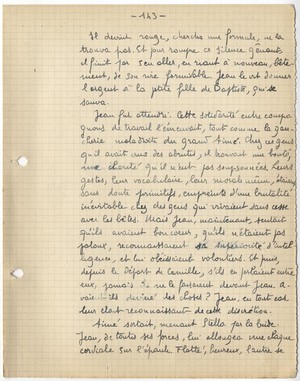 - 143 -
Il devint rouge, chercha une formule, ne la
trouva pas. Et pour rompre ce silence gênant
il finit par s'en aller, en riant à nouveau, bête-
ment, de son rire formidable. Jean le vit donner
l'argent à la petite fille de Baptiste, qui se
sauva.
Jean fut attendri. Cette solidarité entre compa-
gnons de travail l'émouvait, tout comme la gau-
cherie maladroite du grand Aimé. Chez ces gens
qu'il avait crus des abrutis, il trouvait une bonté,
une charité qu'il n'eut pas soupçonnée. Leurs
gestes, leur vocabulaire, leur morale même, étaient
sans doute primitifs, empreints d'une brutalité
inévitable chez des gens qui vivaient sans cesse
avec les bêtes. Mais Jean, maintenant, sentait
qu'ils avaient bon cœur, qu'ils n'étaient pas
jaloux, reconnaissaient sa supériorité d'intel-
ligence, et lui obéissaient volontiers. Et puis,
depuis le départ de Camille, s'ils en parlaient entre
eux, jamais ils ne le faisaient devant Jean. A-
vaient-ils deviné les choses ? Jean, en tout cas
leur était reconnaissant de cette discrétion.
Aimé sortait, menant Stella par la bride.
Jean, de toutes ses forces, lui allongea une claque
cordiale sur l'épaule. Flatté, heureux, l'autre se